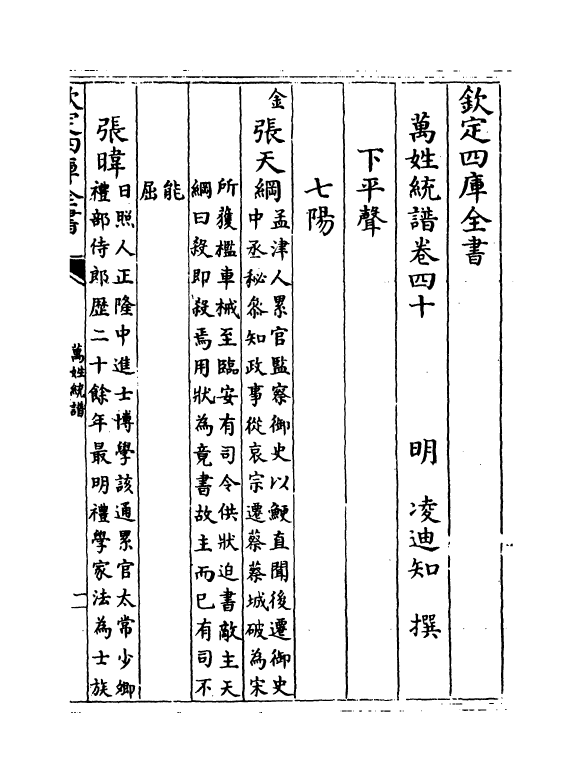 欽定四庫全書
萬姓統譜卷四十
明 凌迪知 撰
下平聲
七陽
金
張天綱孟津人累官監察御史以鯁直聞後遷御史
中丞秘叅知政事從哀宗遷蔡蔡城破為宋
所獲檻車械至臨安有司令供狀迫書敵主天
綱曰殺即殺焉用狀為竟書故主而已有司不
能
屈
張暐日照人正隆中進士博學該通累官太常少卿
禮部侍郎歴二十餘年最明禮學家法為士族
欽定四庫全書
萬姓統譜